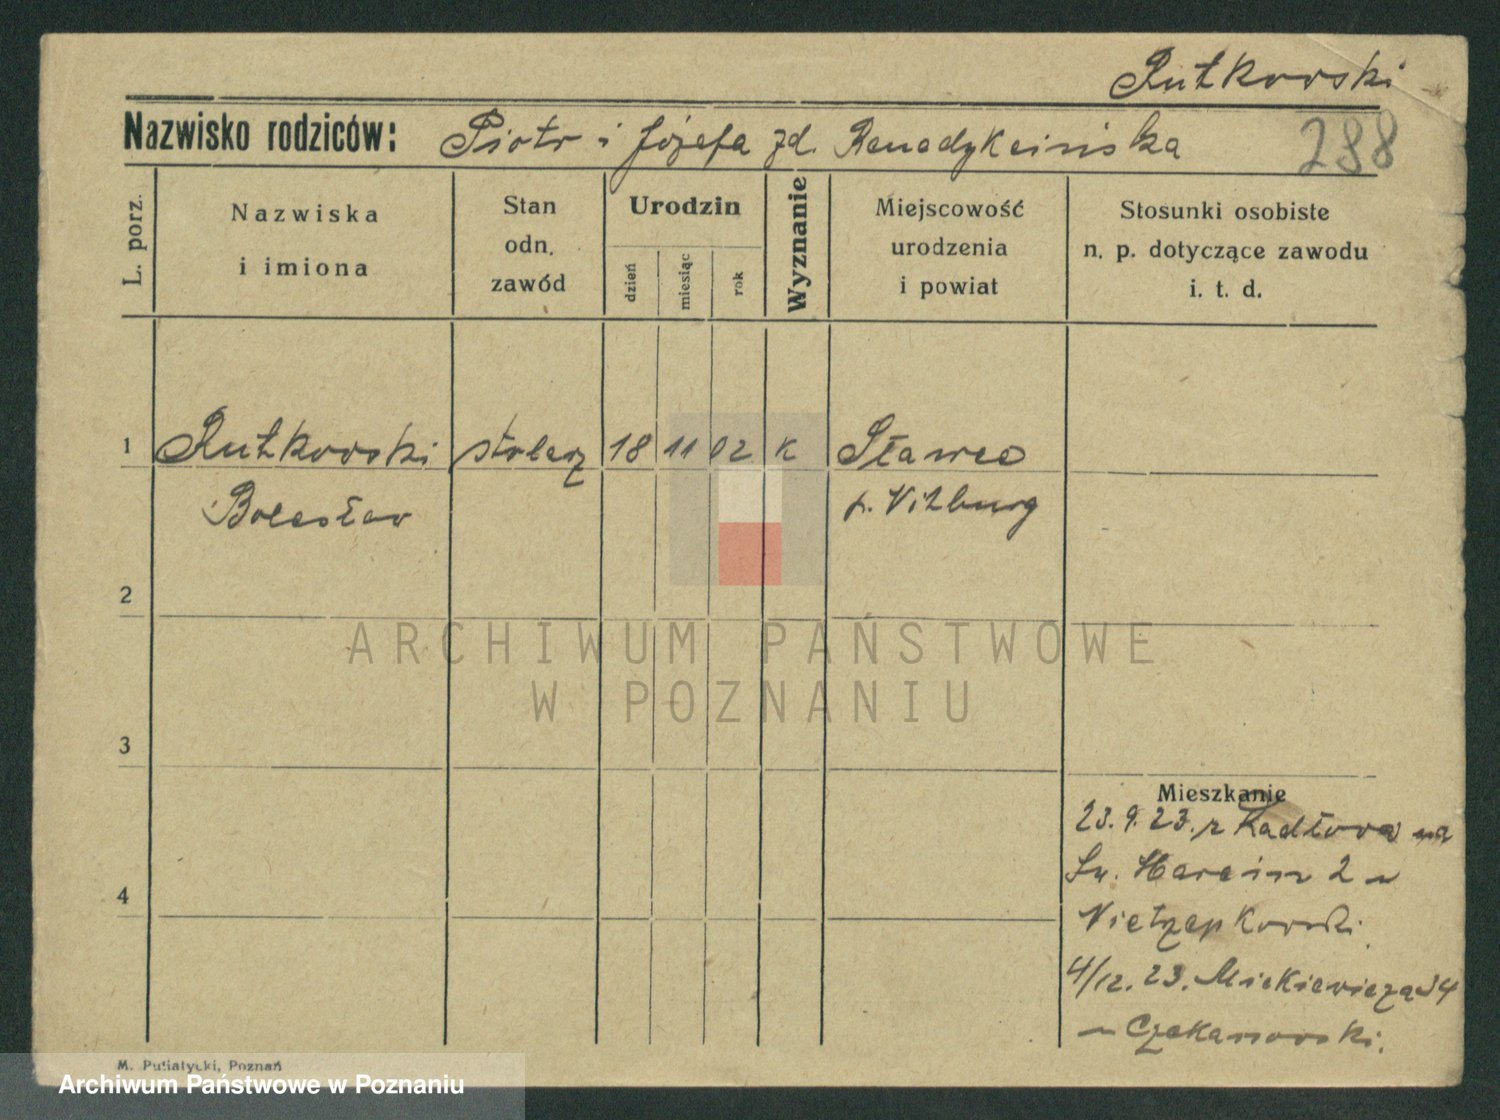 Rutkowski
Nazwisko rodziców: Piotr i Józefa zd.
288
L. porz.
Nazwiska i imiona
Stan odn. zawód
Urodzin
dzień
miesiąc
rok
Wyznanie
Miejscowość urodzenia i powiat
Stosunki osobiste n. p. dotyczące zawodu i. t. d.
1 Rutkowski stolarz 18 11 02 k Sławec
Bolesław p.
2
ARCHIWUM PAŃSTWOWE
W POZNANIU
3
Mieszkanie
23.9.23. z Kadłowa na
Św. Marcin 2 u
4
4/12.23. Mickiewicza 34
u Czekanowski.
M. Putiatycki, Poznań
Archiwum Państwowe w Poznaniu